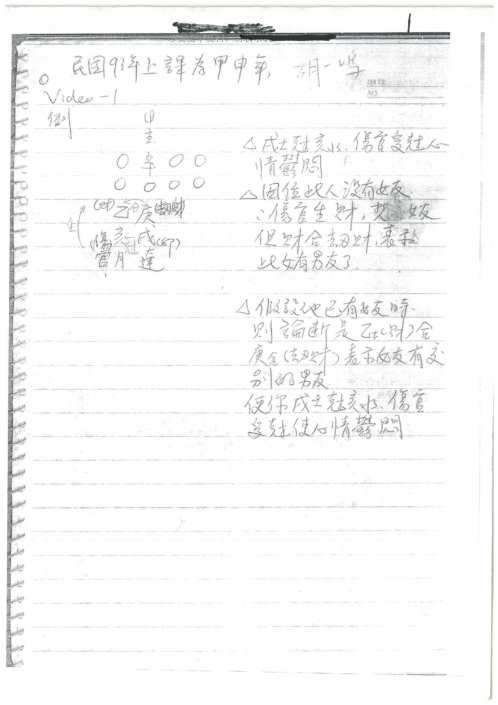 民国93年上課為甲申年, 胡一鳴
Video-1
例 日
主
○ 辛 ○ ○
○ ○ ○ ○
(財) 乙 合 庚 (劫財)
傷官 亥 尅 戌 (印)
月 運
△戌土尅亥水, 傷官受尅心
情鬱悶
△因位此人没有女友
∵傷官生財, 女友
但財合劫財, 表示
此女有男友了.
△假設他已有女友時,
則論断是乙木(財)合
庚金(劫財)表示女友有交
別的男友
使你戌土尅亥水, 傷官
受尅使心情鬱悶